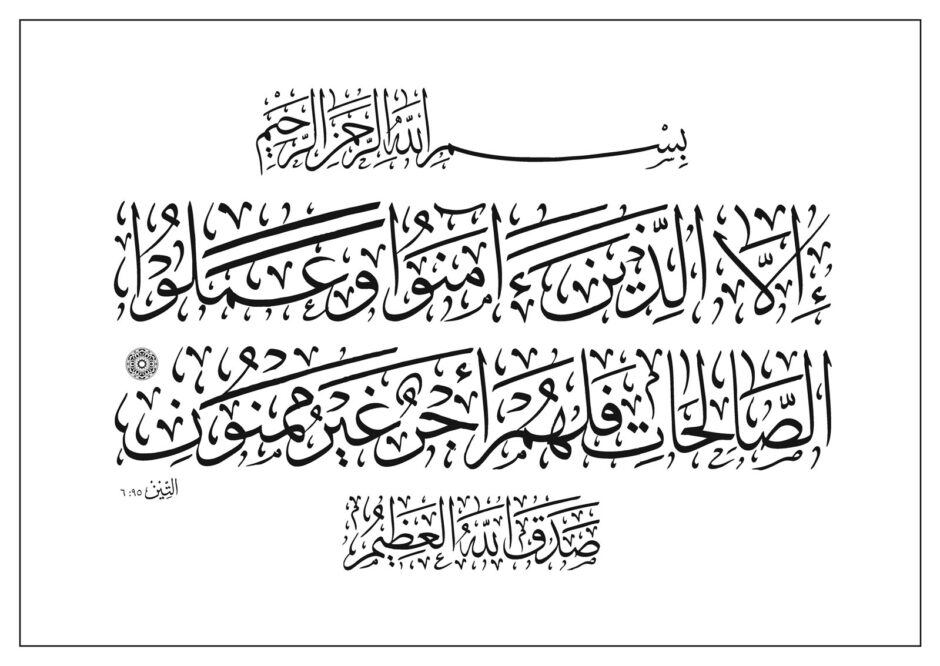 بِسْمِ اللَّهِ الرَّحْمَنِ الرَّحِيمِ
إِلَّا الَّذِينَ ءَامَنُوا وَعَمَلُوا
الصَّالِحَاتِ فَلَهُمْ أَجْرٌ غَيْرُ مَمْنُونٍ
التِّين ٦:٩٥
صَدَقَ اللَّهُ الْعَظِيمُ